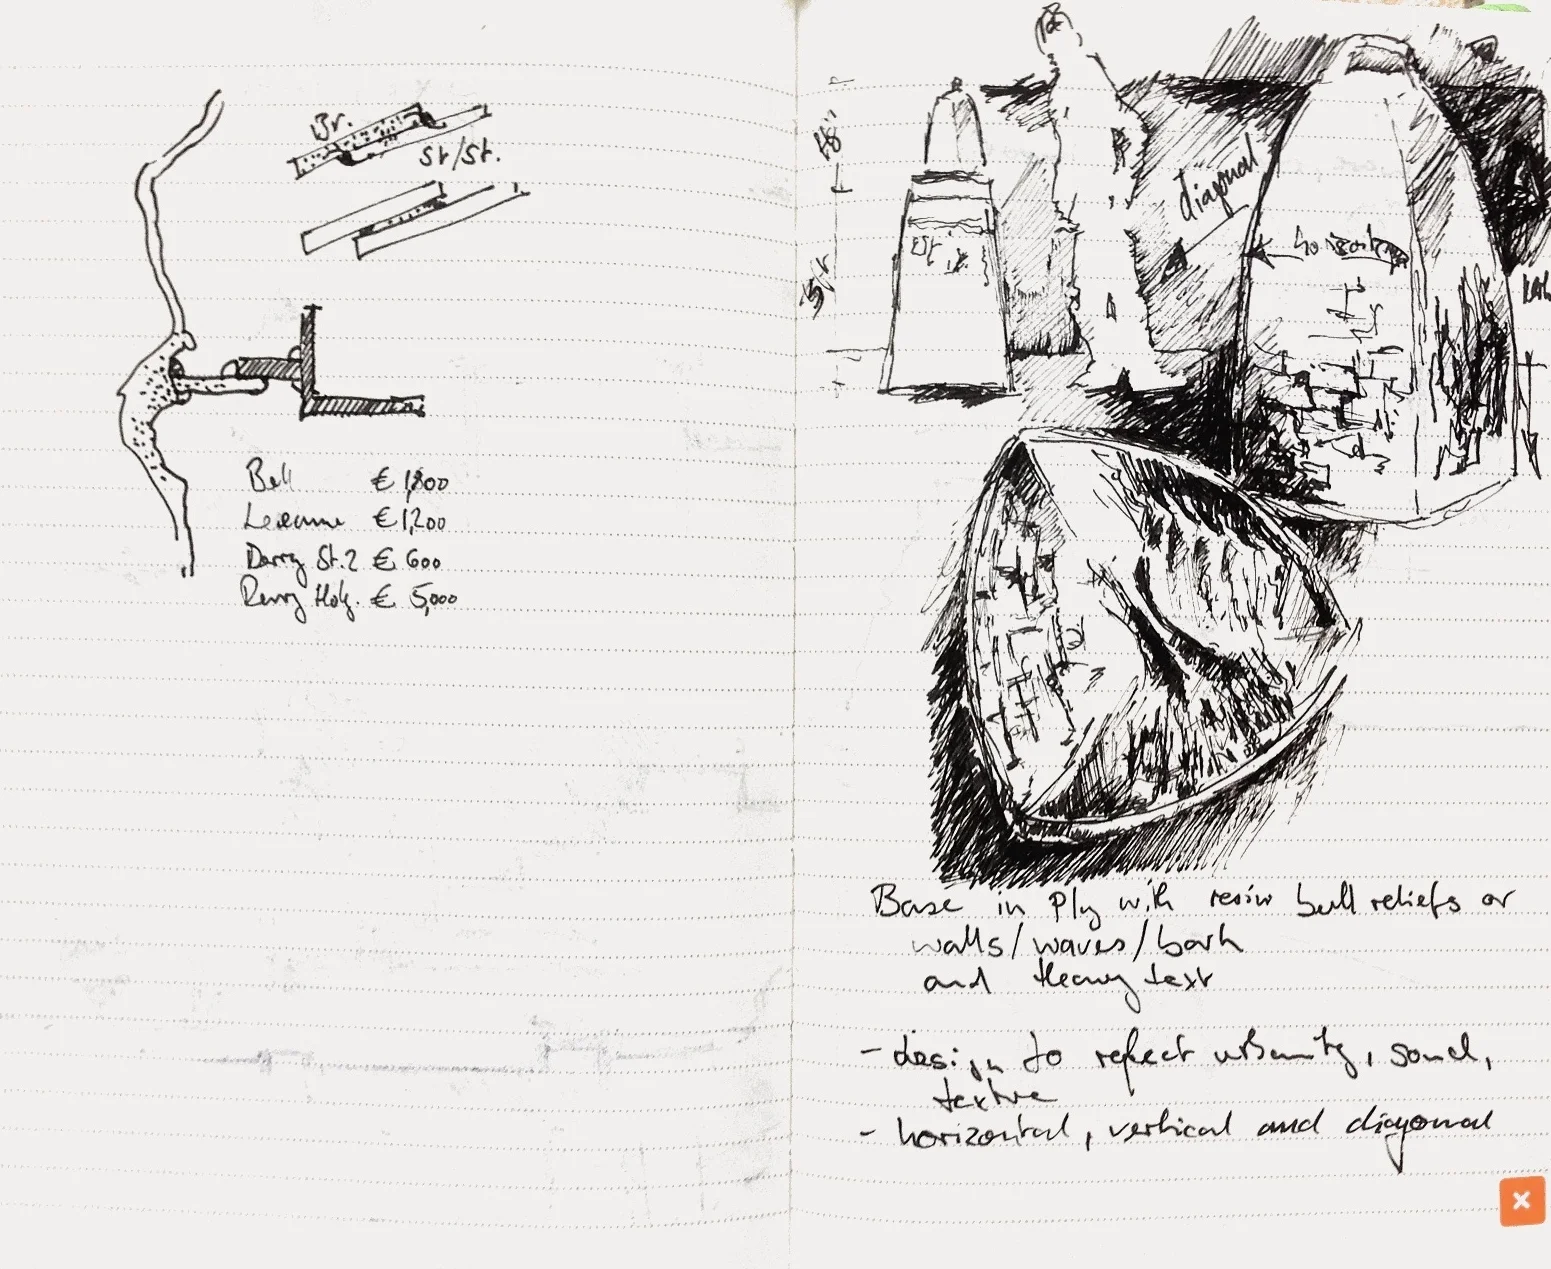 Br.
St/St.
Bell € 1,800
€ 1,200
Derry St.2 € 600
Derry € 5,000
18"
diagonal
horizontal
Base in Ply with resin bell reliefs or
walls/waves/bark
and Heavy text
- design to reflect urbanity, sound,
texture
- horizontal, vertical and diagonal